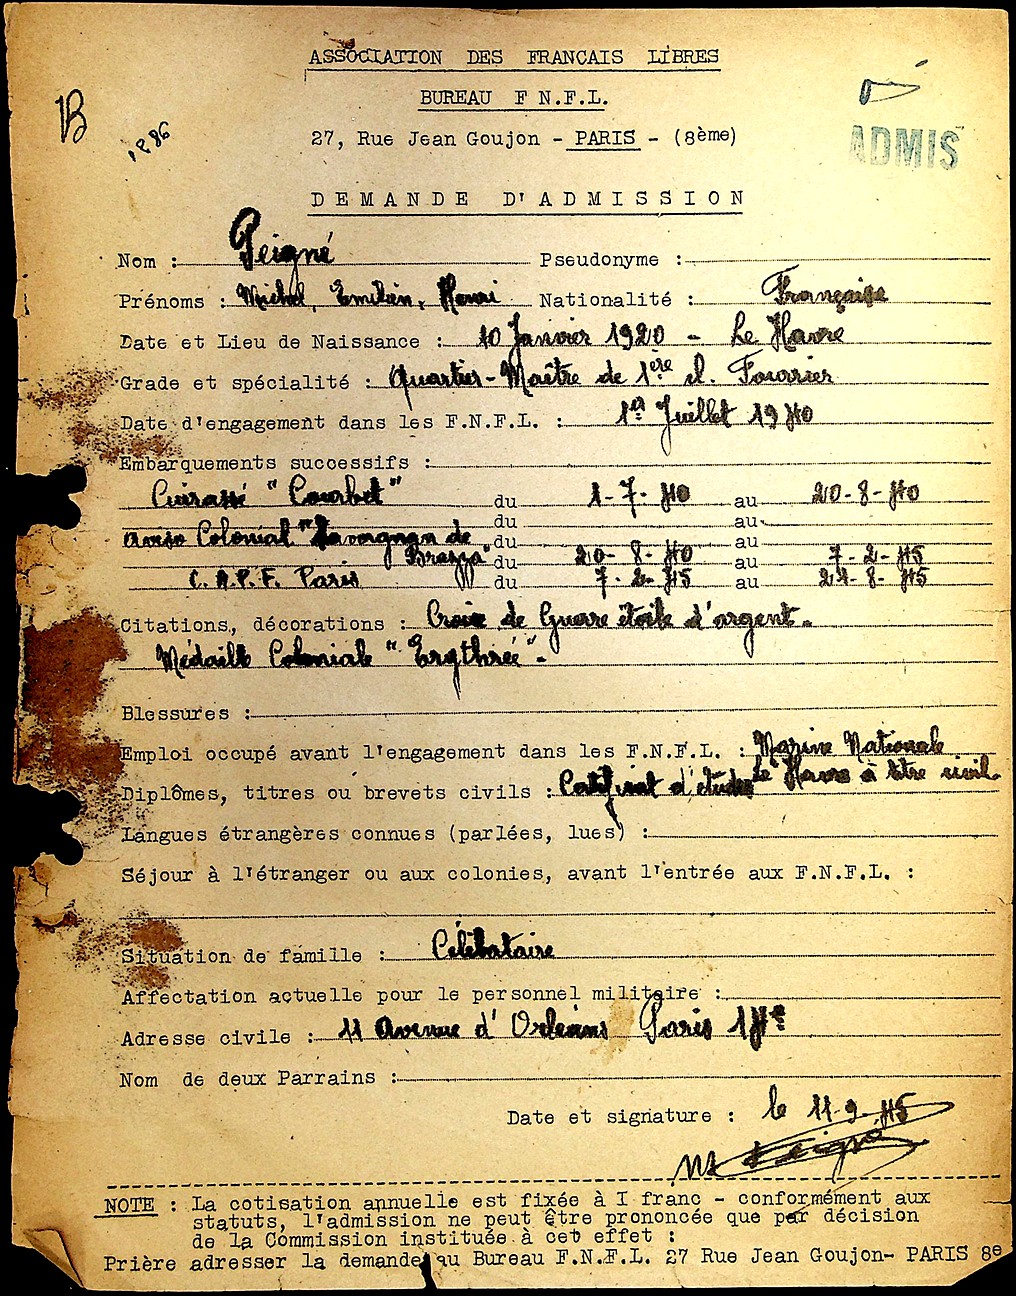 ASSOCIATION DES FRANCAIS LIBRES
BUREAU F N.F.L.
B
27, Rue Jean Goujon - PARIS - (8ème)
ADMIS
DEMANDE D'ADMISSION
Nom : Peigné Pseudonyme :
Prénoms : Michel, Emilien, Henri Nationalité : Française
Date et Lieu de Naissance : 10 Janvier 1920 - Le Havre
Grade et spécialité : Quartier-Maître de 1ère cl. Fourrier
Date d'engagement dans les F.N.F.L. : 1er Juillet 1940
Embarquements successifs :
Cuirassé "Courbet" du 1-7-40 au 20-8-40
du au
Aviso Colonial "Savorgnan de du au
Brazza" du 20-8-40 au 7-2-45
C.A.P.F. Paris du 7-2-45 au 24-8-45
Citations, décorations : Croix de Guerre étoile d'argent.
Médaille Coloniale "Erythrée".
Blessures :
Emploi occupé avant l'engagement dans les F.N.F.L. : Marine Nationale
Le Havre à titre civil.
Diplômes, titres ou brevets civils : Certificat d'études
Langues étrangères connues (parlées, lues) :
Séjour à l'étranger ou aux colonies, avant l'entrée aux F.N.F.L. :
Situation de famille : Célibataire
Affectation actuelle pour le personnel militaire :
Adresse civile : 11 Avenue d'Orléans Paris 14e
Nom de deux Parrains :
Date et signature : le 11-9-45
M Peigné
NOTE : La cotisation annuelle est fixée à I franc - conformément aux
statuts, l'admission ne peut être prononcée que par décision
de la Commission instituée à cet effet :
Prière adresser la demande au Bureau F.N.F.L. 27 Rue Jean Goujon- PARIS 8e